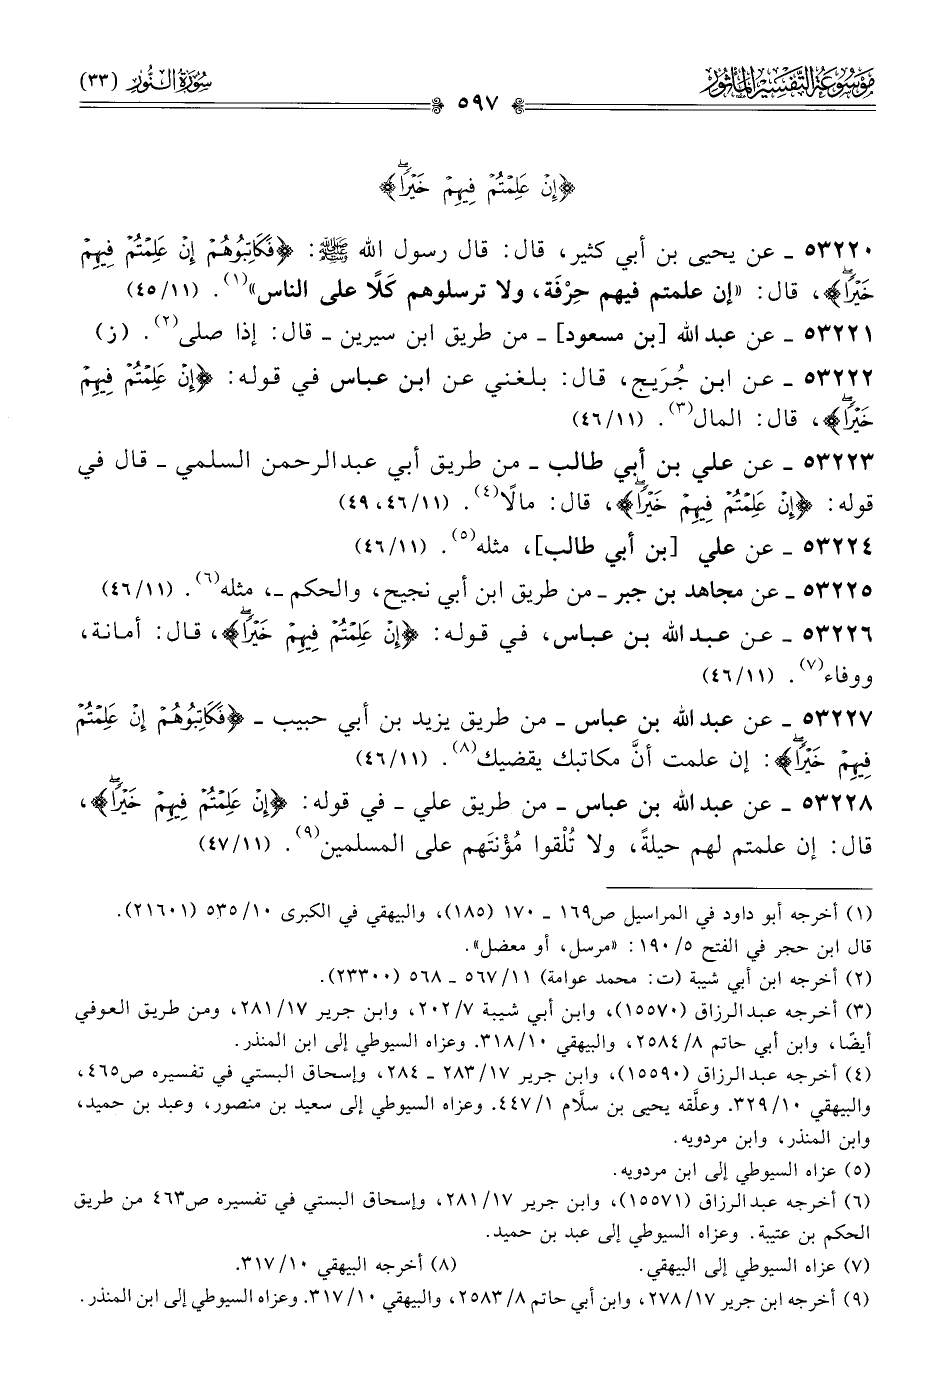 مَوْسُوعَةُ التَّفْسِيرِ المَأْثُورِ
سُورَةُ النُّورِ (٣٣)
٥٩٧
﴿إِنْ عَلِمْتُمْ فِيهِمْ خَيْرًا﴾
٥٣٢٢٠ ـ عن يحيى بن أبي كثير، قال: قال رسول الله ﷺ: ﴿فَكَاتِبُوهُمْ إِنْ عَلِمْتُمْ فِيهِمْ
خَيْرًا﴾، قال: «إن علمتم فيهم حِرْفَة، ولا ترسلوهم كَلًّا على الناس»(١). (٤٥/١١)
٥٣٢٢١ ـ عن عبد الله [بن مسعود] ـ من طريق ابن سيرين ـ قال: إذا صلى(٢). (ز)
٥٣٢٢٢ ـ عن ابن جُرَيج، قال: بلغني عن ابن عباس في قوله: ﴿إِنْ عَلِمْتُمْ فِيهِمْ
خَيْرًا﴾، قال: المال(٣). (٤٦/١١)
٥٣٢٢٣ ـ عن علي بن أبي طالب ـ من طريق أبي عبد الرحمن السلمي ـ قال في
قوله: ﴿إِنْ عَلِمْتُمْ فِيهِمْ خَيْرًا﴾، قال: مالًا(٤). (٤٦/١١، ٤٩)
٥٣٢٢٤ ـ عن علي [بن أبي طالب]، مثله(٥). (٤٦/١١)
٥٣٢٢٥ ـ عن مجاهد بن جبر ـ من طريق ابن أبي نجيح، والحكم ـ، مثله(٦). (٤٦/١١)
٥٣٢٢٦ ـ عن عبد الله بن عباس، في قوله: ﴿إِنْ عَلِمْتُمْ فِيهِمْ خَيْرًا﴾، قال: أمانة،
ووفاء(٧). (٤٦/١١)
٥٣٢٢٧ ـ عن عبد الله بن عباس ـ من طريق يزيد بن أبي حبيب ـ ﴿فَكَاتِبُوهُمْ إِنْ عَلِمْتُمْ
فِيهِمْ خَيْرًا﴾: إن علمت أنَّ مكاتبك يقضيك(٨). (٤٦/١١)
٥٣٢٢٨ ـ عن عبد الله بن عباس ـ من طريق علي ـ في قوله: ﴿إِنْ عَلِمْتُمْ فِيهِمْ خَيْرًا﴾،
قال: إن علمتم لهم حيلةً، ولا تُلْقوا مُؤْنَتَهم على المسلمين(٩). (٤٧/١١)
(١) أخرجه أبو داود في المراسيل ص١٦٩ ـ ١٧٠ (١٨٥)، والبيهقي في الكبرى ١٠/ ٥٣٥ (٢١٦٠١).
قال ابن حجر في الفتح ٥/ ١٩٠: «مرسل، أو معضل».
(٢) أخرجه ابن أبي شيبة (ت: محمد عوامة) ١١/ ٥٦٧ ـ ٥٦٨ (٢٣٣٠٠).
(٣) أخرجه عبد الرزاق (١٥٥٧٠)، وابن أبي شيبة ٧/ ٢٠٢، وابن جرير ١٧/ ٢٨١، ومن طريق العوفي
أيضًا، وابن أبي حاتم ٨/ ٢٥٨٤، والبيهقي ١٠/ ٣١٨. وعزاه السيوطي إلى ابن المنذر.
(٤) أخرجه عبد الرزاق (١٥٥٩٠)، وابن جرير ١٧/ ٢٨٣ ـ ٢٨٤، وإسحاق البستي في تفسيره ص٤٦٥،
والبيهقي ١٠/ ٣٢٩. وعلَّقه يحيى بن سلَّام ١/ ٤٤٧. وعزاه السيوطي إلى سعيد بن منصور، وعبد بن حميد،
وابن المنذر، وابن مردويه.
(٥) عزاه السيوطي إلى ابن مردويه.
(٦) أخرجه عبد الرزاق (١٥٥٧١)، وابن جرير ١٧/ ٢٨١، وإسحاق البستي في تفسيره ص٤٦٣ من طريق
الحكم بن عتيبة. وعزاه السيوطي إلى عبد بن حميد.
(٧) عزاه السيوطي إلى البيهقي. (٨) أخرجه البيهقي ١٠/ ٣١٧.
(٩) أخرجه ابن جرير ١٧/ ٢٧٨، وابن أبي حاتم ٨/ ٢٥٨٣، والبيهقي ١٠/ ٣١٧. وعزاه السيوطي إلى ابن المنذر.